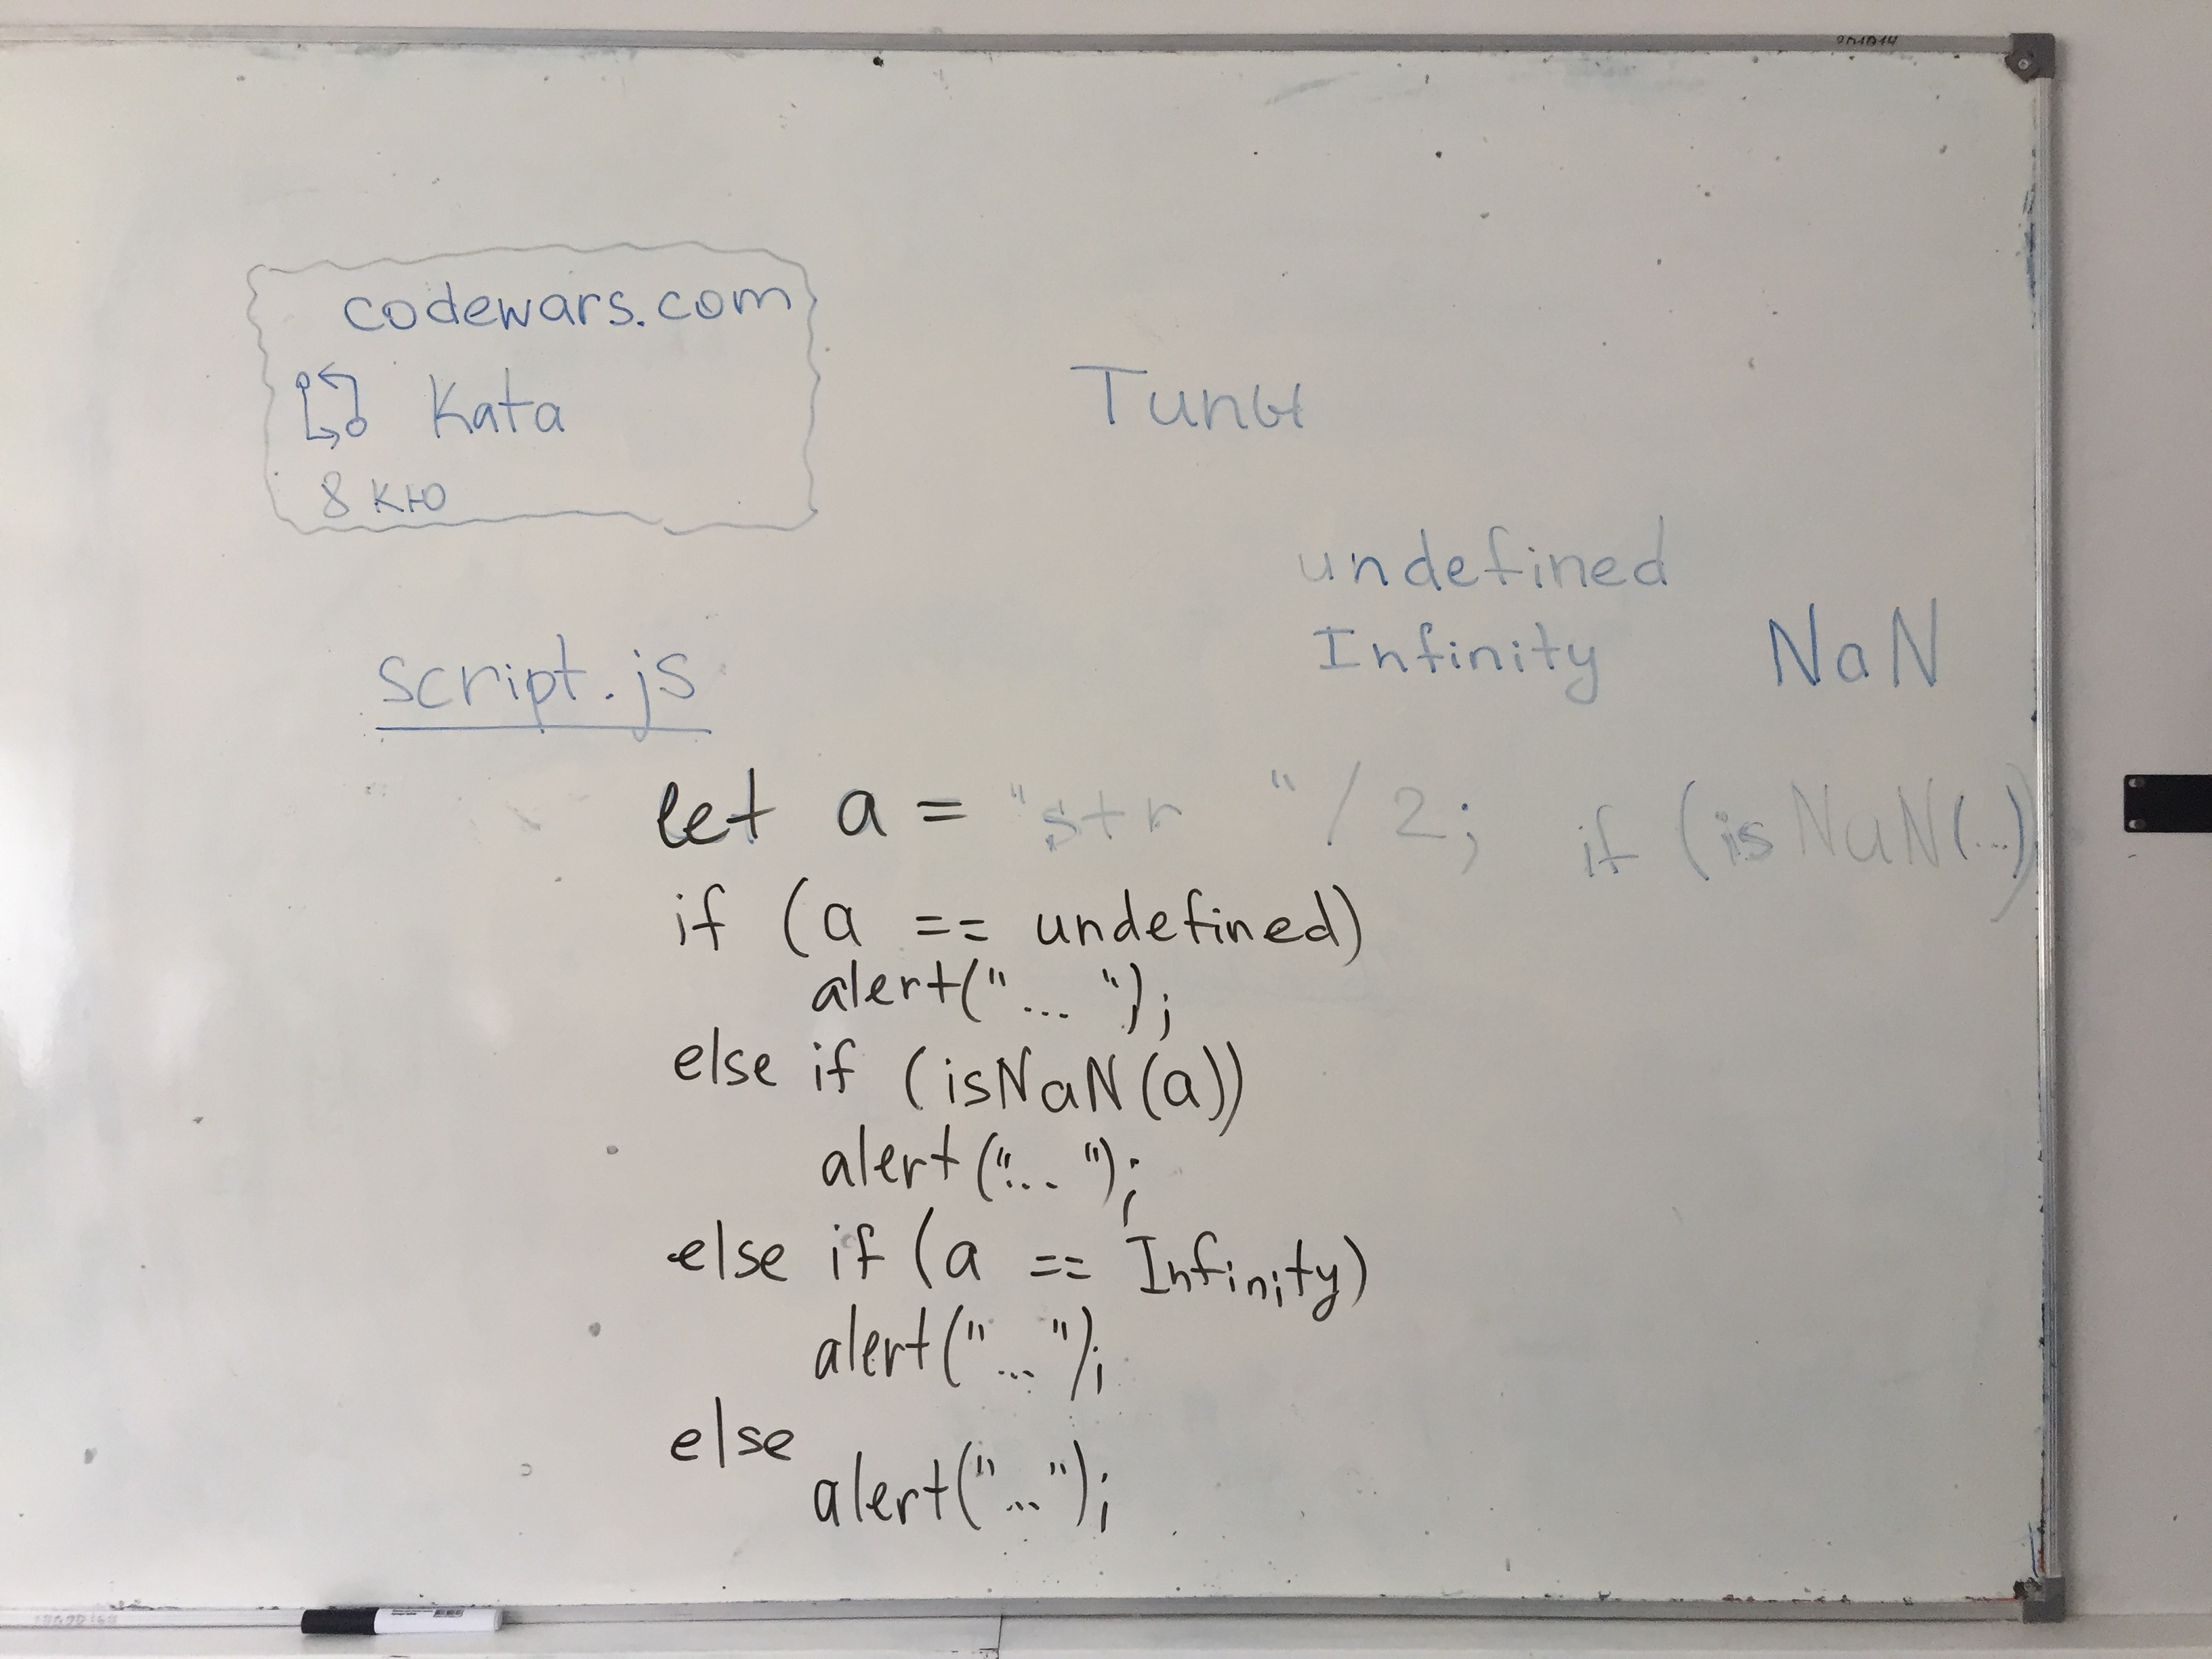 codewars.com
Kata
8 кю
Типы
undefined
Infinity NaN
script.js
let a = "str " / 2; if (isNaN(...)
if (a == undefined)
alert("... ");
else if (isNaN(a))
alert("... ");
else if (a == Infinity)
alert("... ");
else
alert("...");